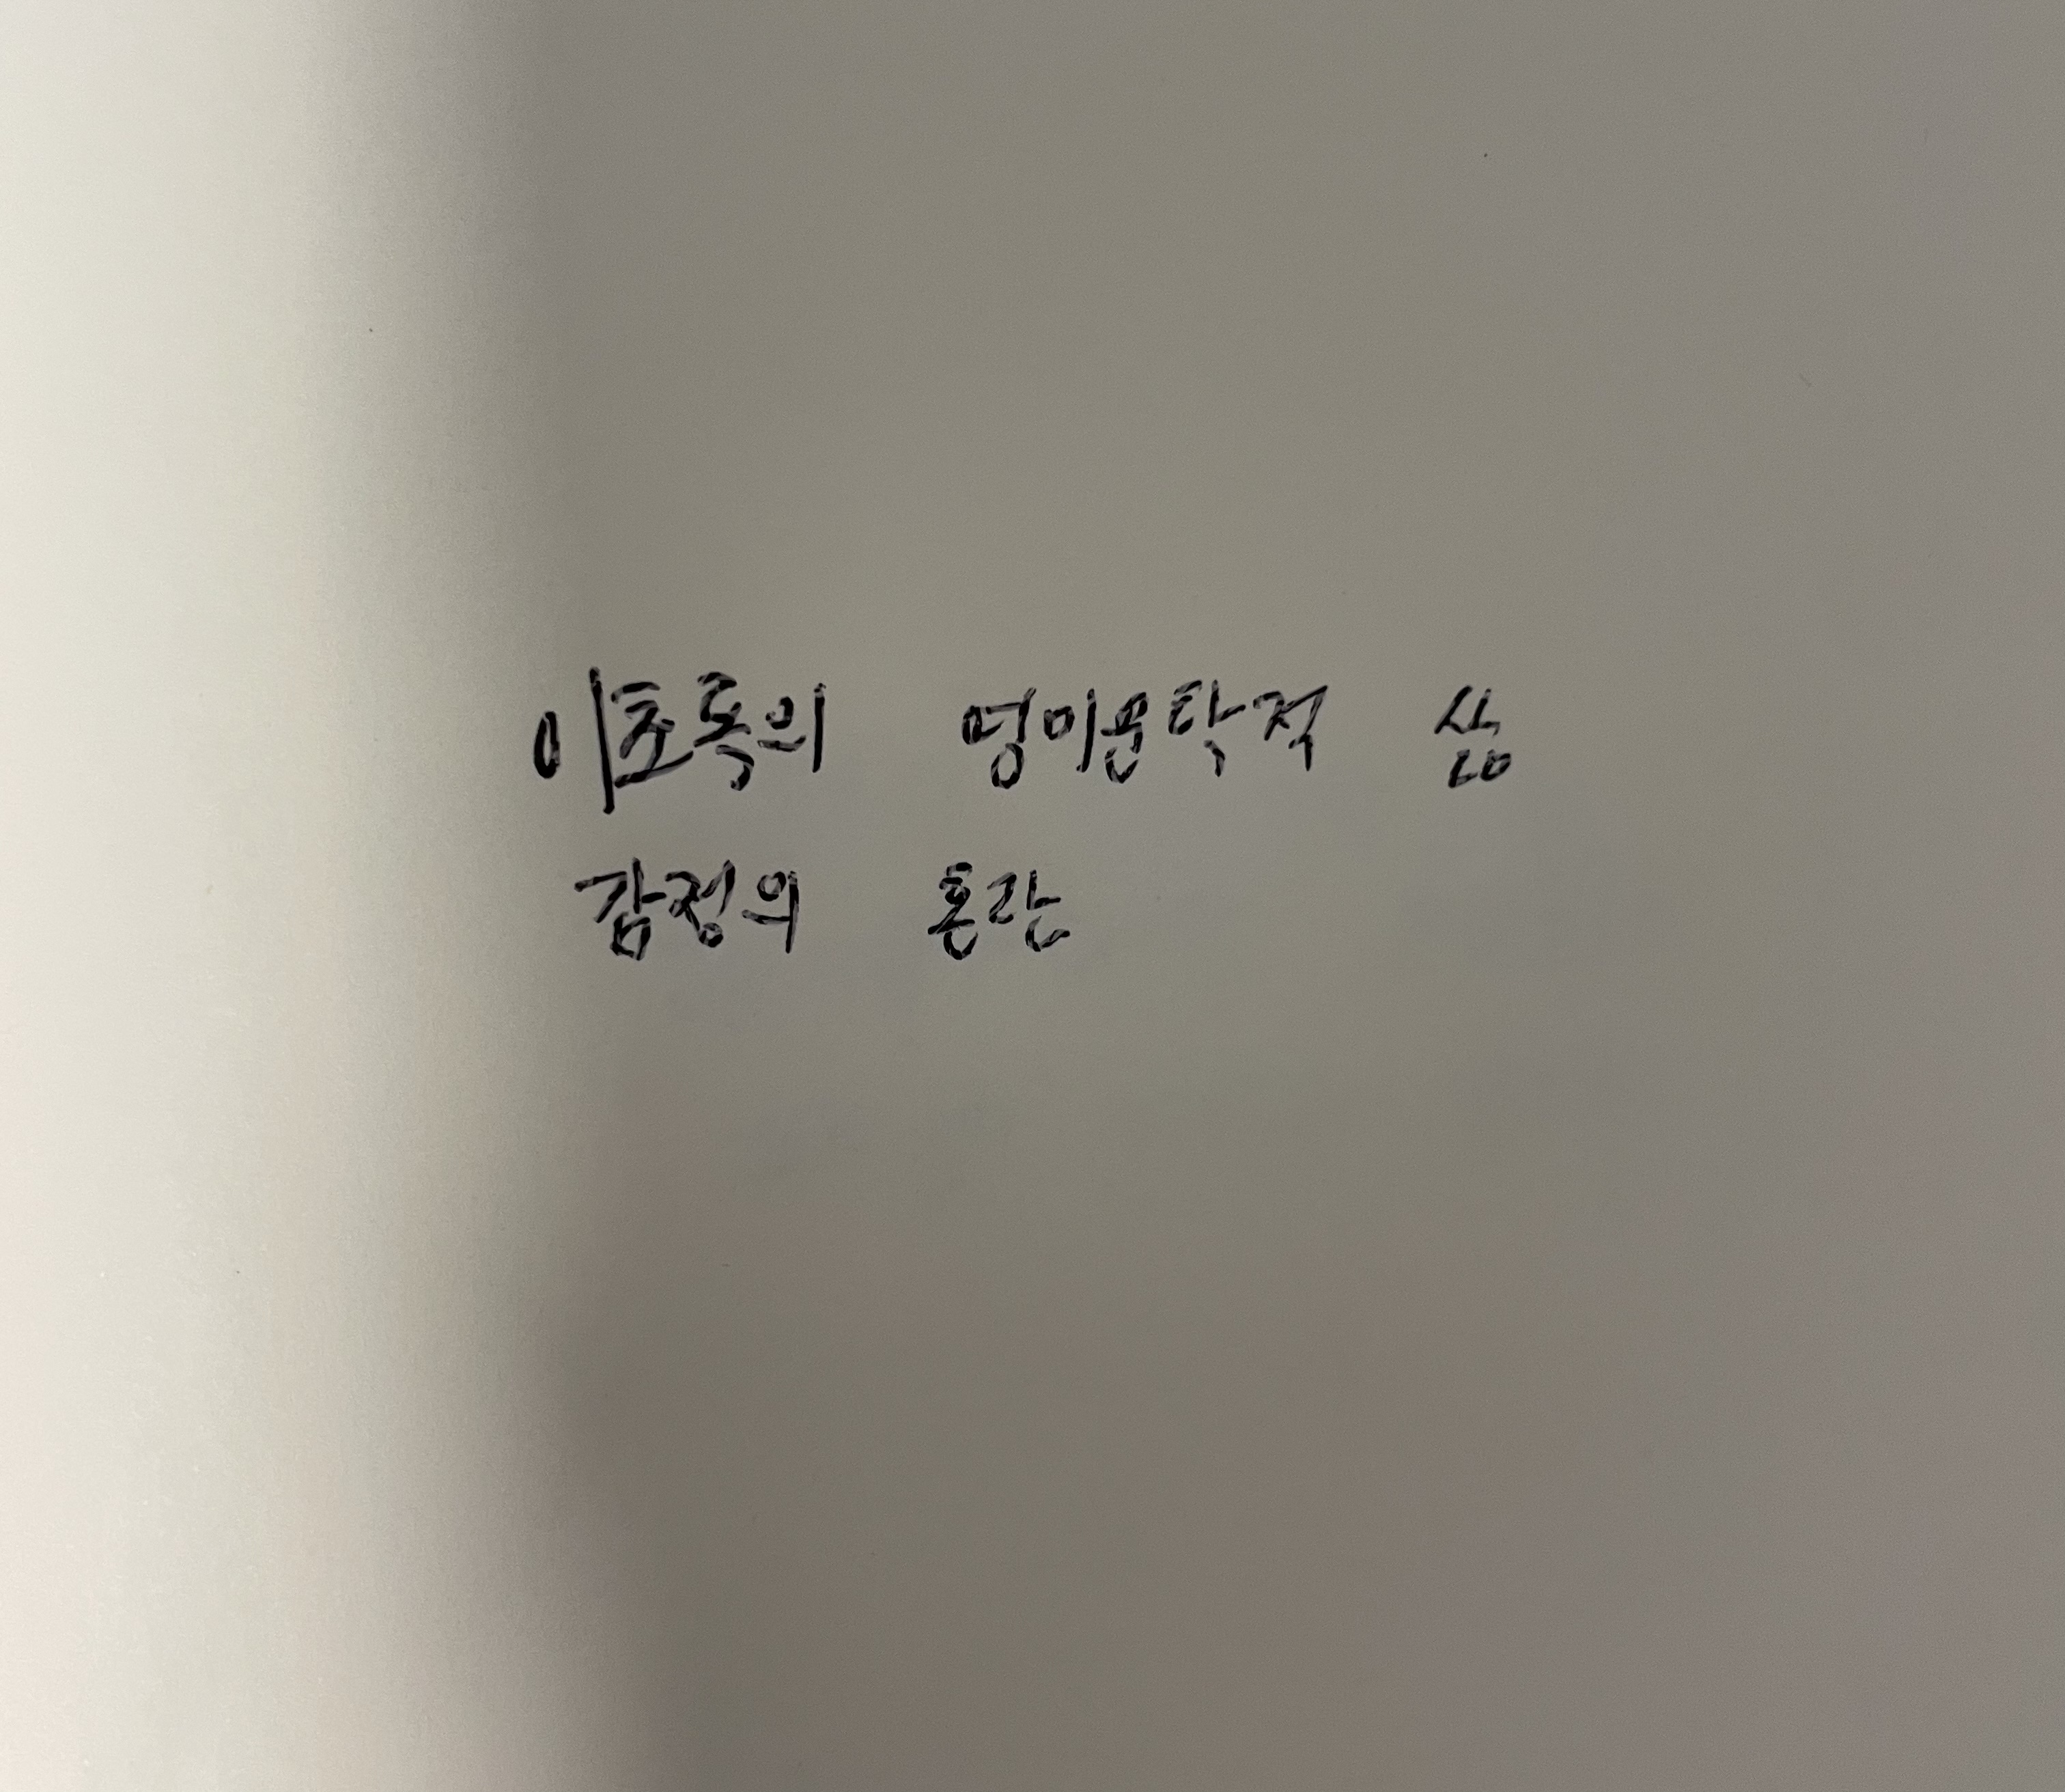 이초록의 영미문학적 삶
감정의 혼란